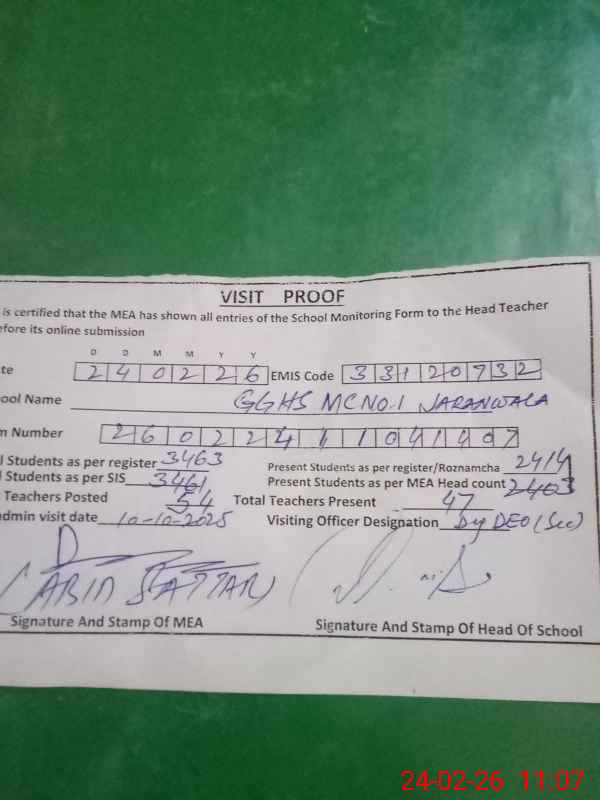 VISIT PROOF
is certified that the MEA has shown all entries of the School Monitoring Form to the Head Teacher
efore its online submission
D D M M Y Y
te 240226 EMIS Code 33120732
ool Name GGHS MC NO.1 JARANWALA
m Number
l Students as per register 3463 Present Students as per register/Roznamcha 2414
l Students as per SIS 3461 Present Students as per MEA Head count 2403
Teachers Posted 54 Total Teachers Present 47
dmin visit date 10-10-2025 Visiting Officer Designation Dy DEO (Sec)
(ABID SATTAR)
Signature And Stamp Of MEA Signature And Stamp Of Head Of School
24-02-26 11:07